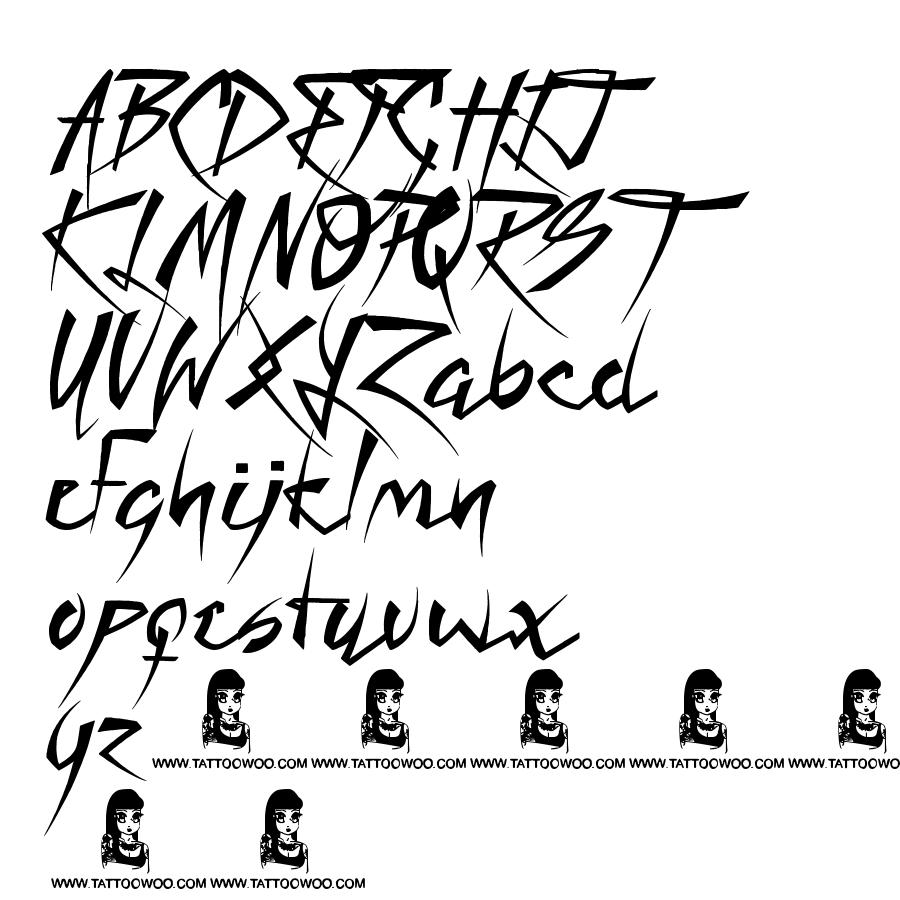 ABCDEFGHIJ
KLMNOPQRST
UVWXYZabcd
efghijklmn
opqrstuvwx
yz WWW.TATTOOWOO.COM WWW.TATTOOWOO.COM WWW.TATTOOWOO.COM WWW.TATTOOWOO.COM WWW.TATTOOWO
WWW.TATTOOWOO.COM WWW.TATTOOWOO.COM